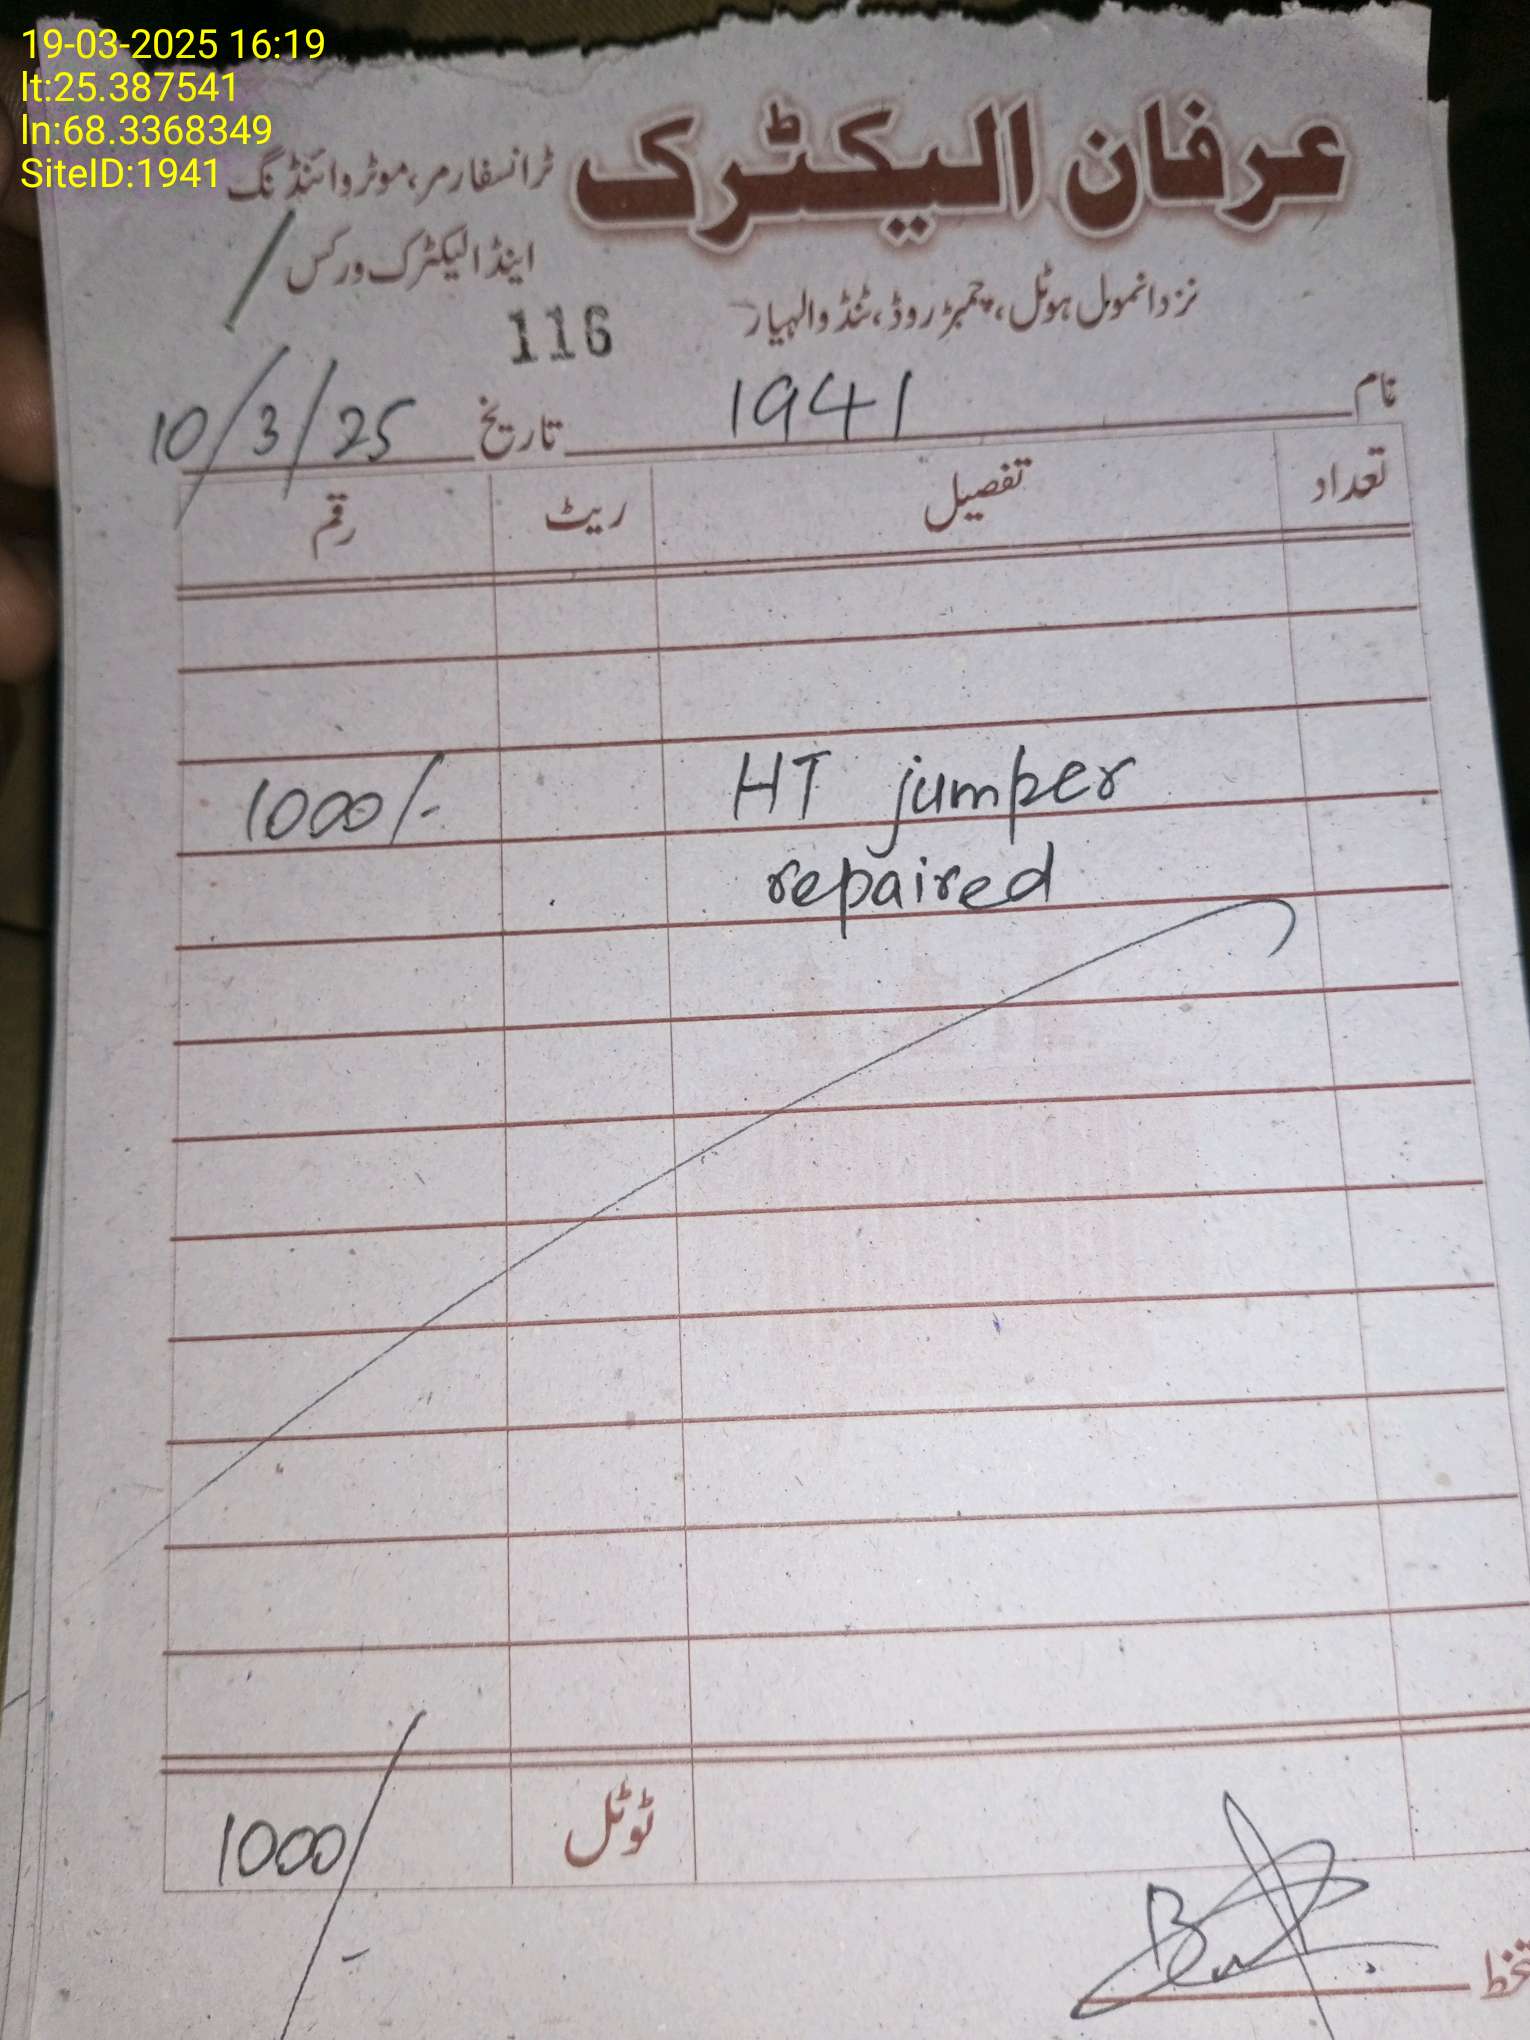 19-03-2025 16:19
lt:25.387541
ln:68.3368349
SiteID:1941
عرفان الیکٹرک
ٹرانسفارمر، موٹر وائنڈنگ
اینڈ الیکٹرک ورکس
نزد انمول ہوٹل، چمبڑ روڈ، ٹنڈوالہیار
116
نام 1941 تاریخ 10/3/25
تعداد تفصیل ریٹ رقم
HT jumper 1000/-
repaired
ٹوٹل 1000/-